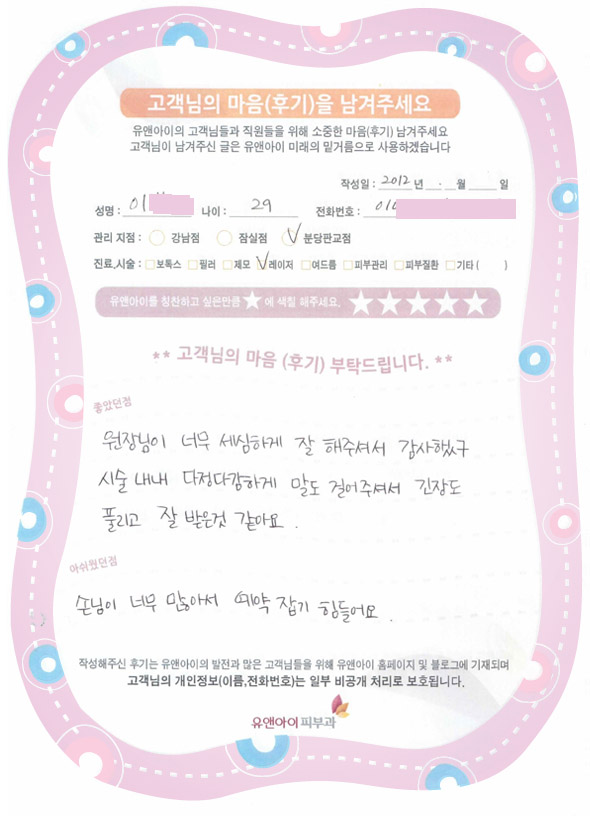 고객님의 마음(후기)을 남겨주세요
유앤아이의 고객님들과 직원들을 위해 소중한 마음(후기) 남겨주세요
고객님이 남겨주신 글은 유앤아이 미래의 밑거름으로 사용하겠습니다
작성일 : 2012 년 월 일
성명 : 이 나이 : 29 전화번호 : 010
관리 지점 : 강남점 잠실점 분당판교점
진료,시술 : 보톡스 필러 제모 레이저 여드름 피부관리 피부질환 기타 ( )
유앤아이를 칭찬하고 싶은만큼 ★ 에 색칠 해주세요. ★★★★★
** 고객님의 마음 (후기) 부탁드립니다. **
좋았던점
원장님이 너무 세심하게 잘 해주셔서 감사했구
시술 내내 다정다감하게 말도 걸어주셔서 긴장도
풀리고 잘 받은것 같아요.
아쉬웠던점
손님이 너무 많아서 예약 잡기 힘들어요.
작성해주신 후기는 유앤아이의 발전과 많은 고객님들을 위해 유앤아이 홈페이지 및 블로그에 기재되며
고객님의 개인정보(이름,전화번호)는 일부 비공개 처리로 보호됩니다.
유앤아이피부과